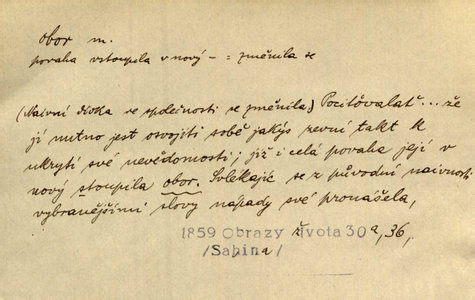 obor m.
povaha vstoupila v nový – = změnila se
(Naivní dívka ve společnosti se změnila.) Pociťovalať... že
jí nutno jest osvojiti sobě jakýs pevní takt k
ukrytí své nevědomosti; již i celá povaha její v
nový stoupila obor. Svlékajíc se z původní naivnosti
vybranějšími slovy nápady své pronášela,
1859 Obrazy života 30a, 36,
/Sabina/